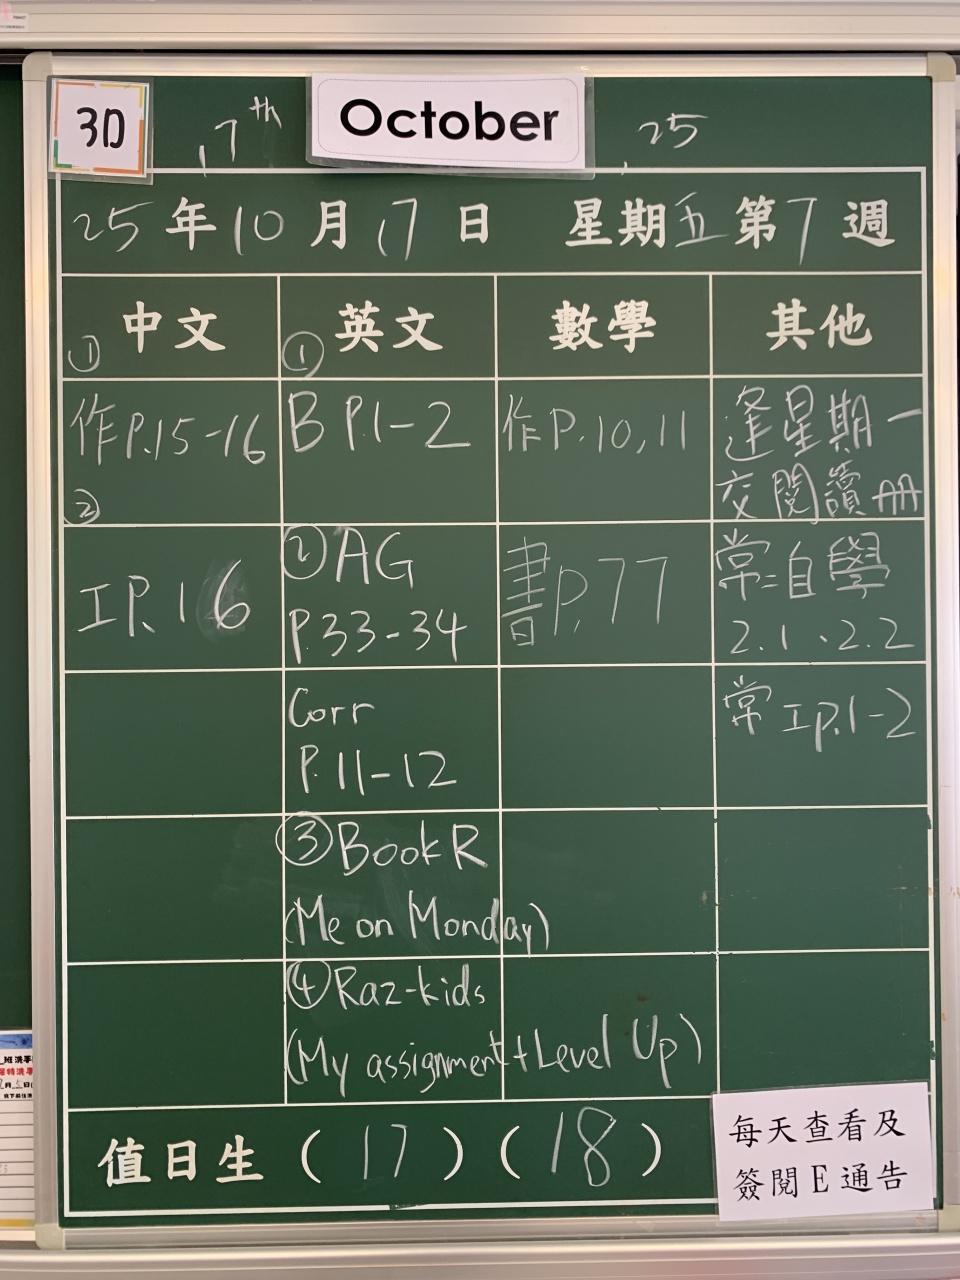 3D
17th October 25
25年10月17日 星期五第7週
① 中文 ① 英文 數學 其他
作P.15-16
②
工P.16
B P.1-2
② AG
P.33-34
Corr
P.11-12
③ Book R
(Me on Monday)
④ Raz-kids
(My assignment + Level Up)
作P.10,11
書P.77
逢星期一
交閱讀冊
常=自學
2.1、2.2
常工P.1-2
值日生 (17) (18)
每天查看及
簽閱E通告